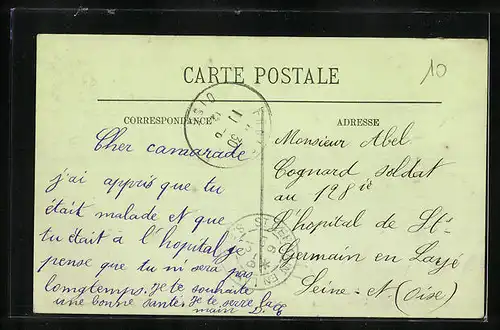 10
CARTE POSTALE
CORRESPONDANCE
Cher camarade
j'ai appris que tu
était malade et que
tu était à l'hopital je
pense que tu ni sera pas
longtemps. Je te souhaite
une bonne santé. Je te serre la
main D.
ADRESSE
Monsieur Abel
Cognard soldat
au 128 ie
l'hopital de St-
Germain en Layé
Seine-et-(Oise)
PARIS
11 30
ST GERMAIN EN